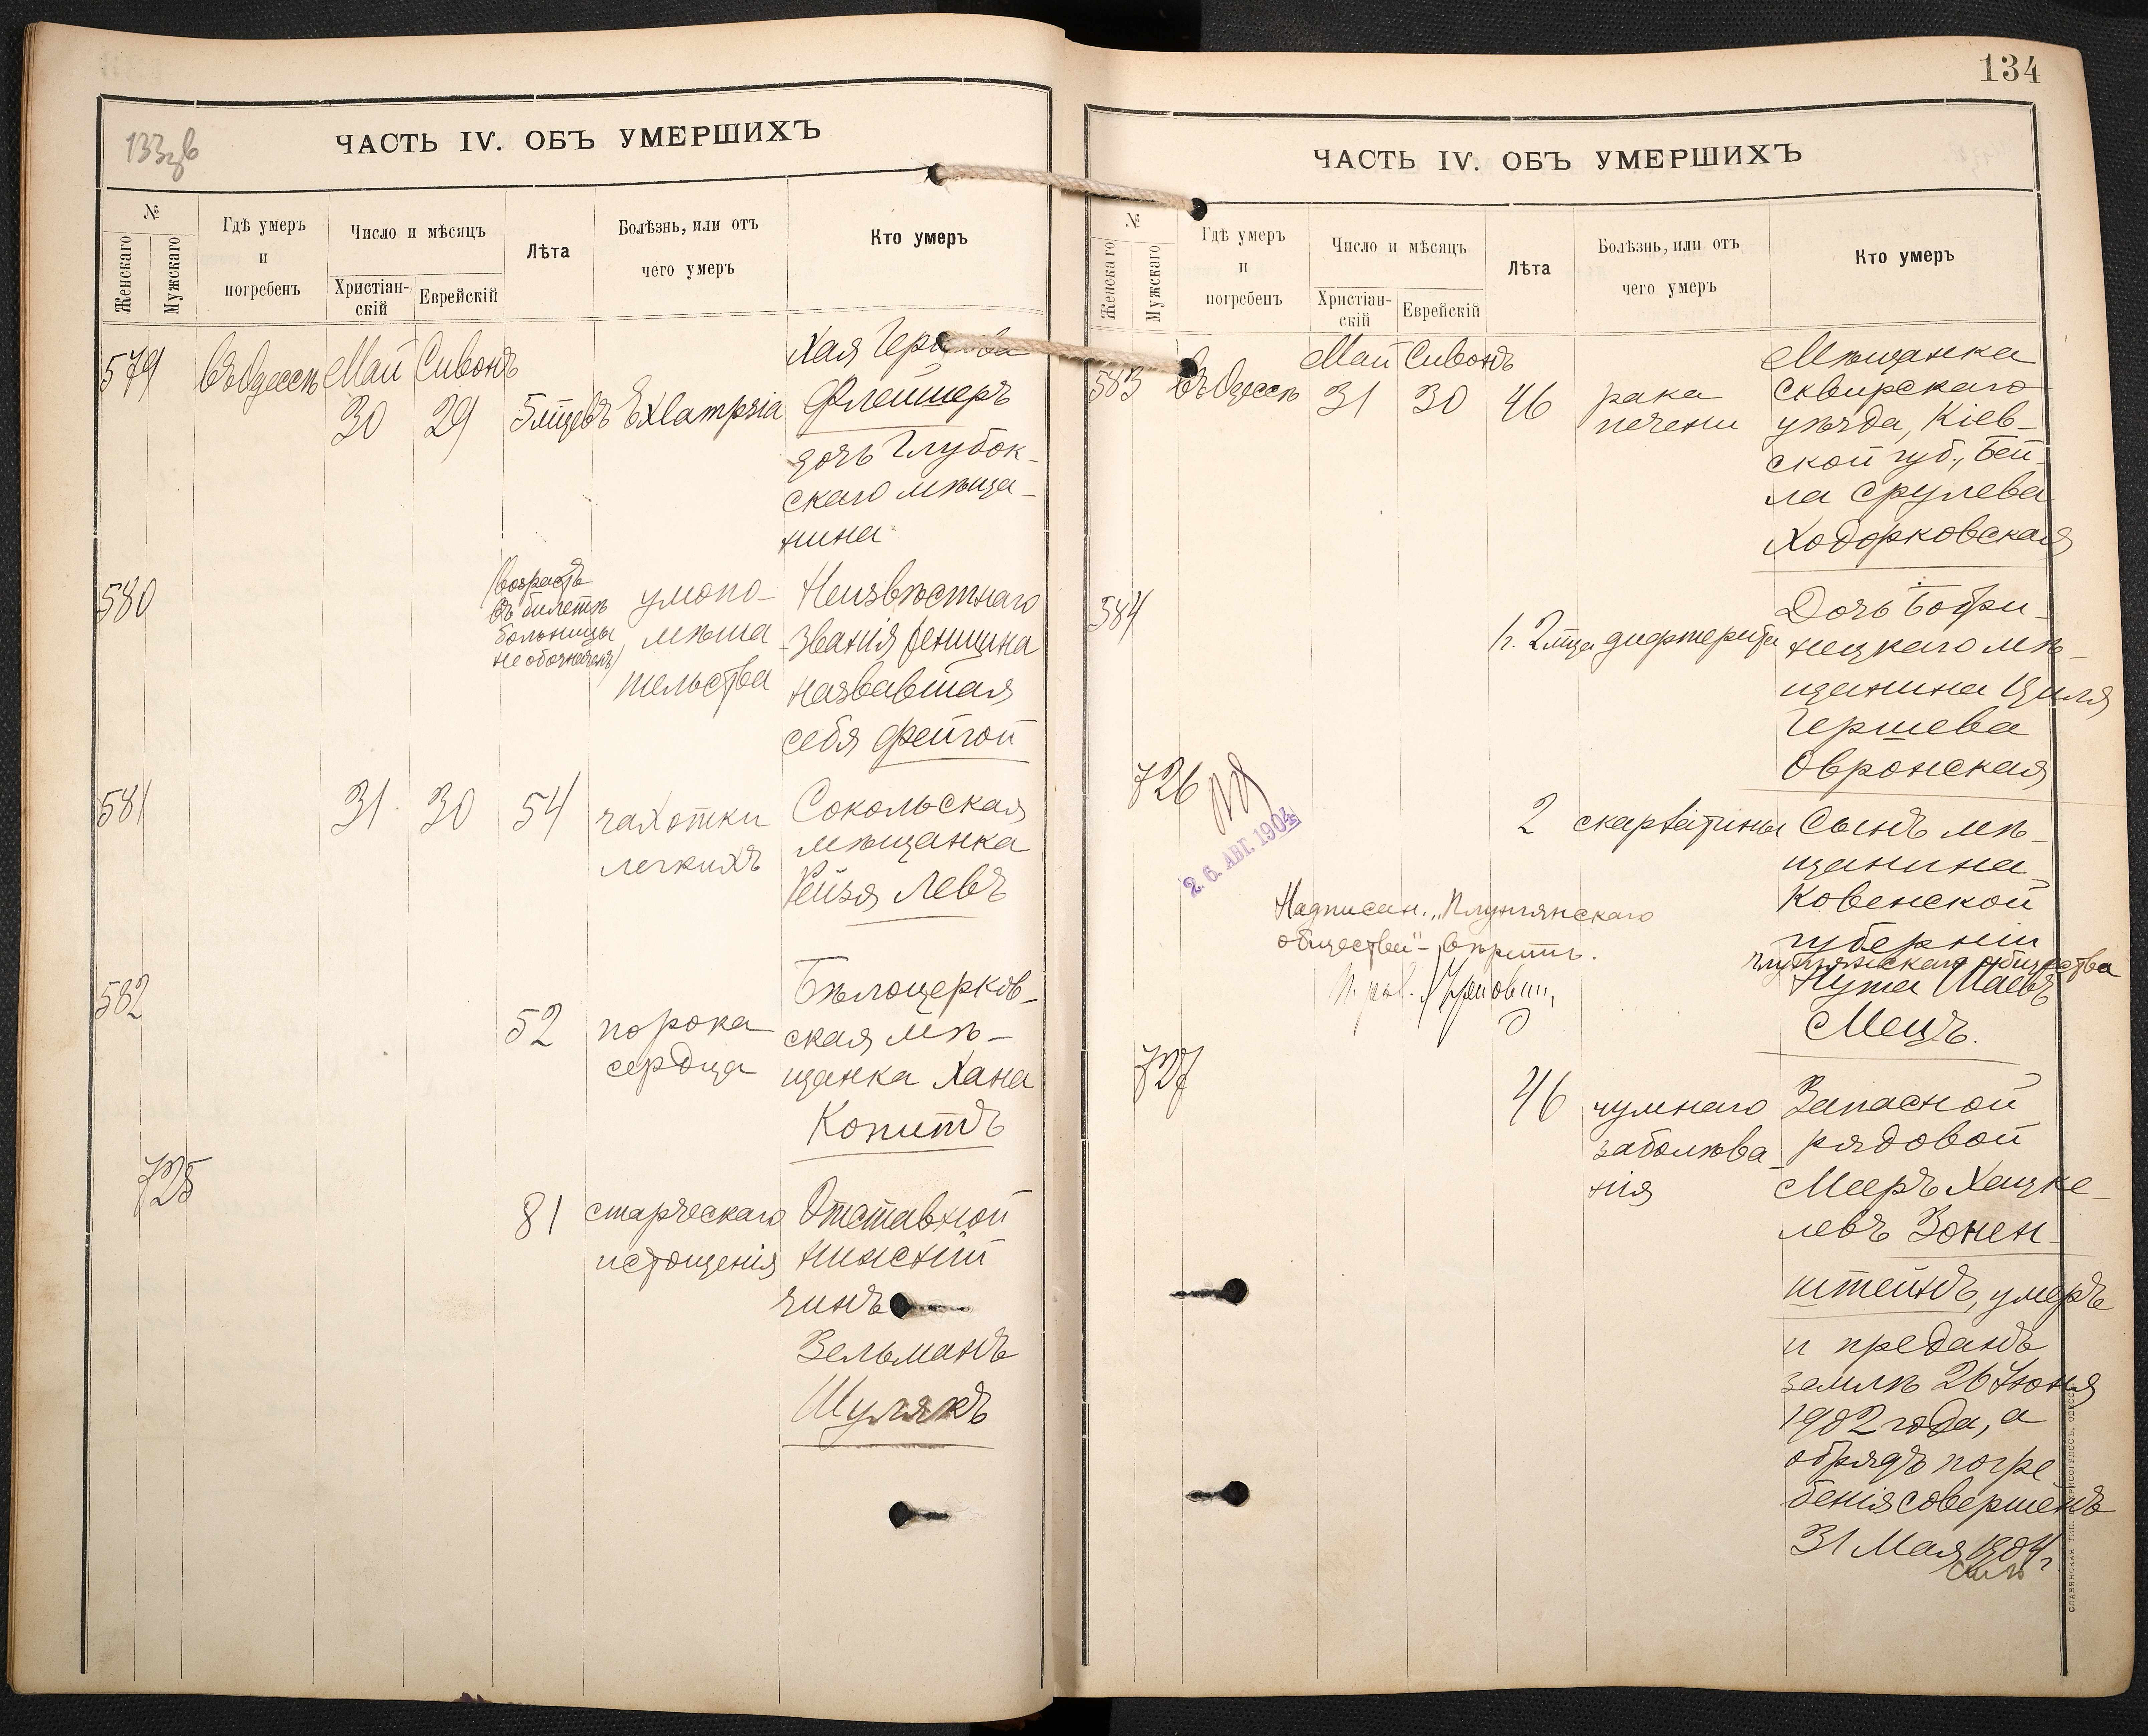 133 зв
ЧАСТЬ IV. ОБЪ УМЕРШИХЪ
№
Женскаго
Мужскаго
Гдѣ умеръ
и
погребенъ
Число и мѣсяцъ
Христіан-
скій
Еврейскій
Лѣта
Болѣзнь, или отъ
чего умеръ
Кто умеръ
579 въ Одессѣ Май Сивонъ
30 29 5 мѣсцевъ Exlampsia
Хая
Флейшеръ
дочь Глубок-
скаго мѣща-
нина
580
(возрастъ
въ билетѣ
больницы
не обозначенъ)
умопо-
мѣша
тельства
Неизвѣстнаго
званія женщина
назвавшая
себя Фейгой
581 31 30 54
чахотки
легкихъ
Сокольская
мѣщанка
Рейзя Левъ
582 52
порока
сердца
Бѣлоцерков-
ская мѣ-
щанка Хана
Копитъ
725 81
старческаго
истощенія
Отставной
нижній
чинъ
Зельманъ
Шулякъ
134
ЧАСТЬ IV. ОБЪ УМЕРШИХЪ
№
Женскаго
Мужскаго
Гдѣ умеръ
и
погребенъ
Число и мѣсяцъ
Христіан-
скій
Еврейскій
Лѣта
Болѣзнь, или отъ
чего умеръ
Кто умеръ
583 въ Одессѣ Май Сивонъ
31 30 46
рака
печени
Мѣщанка
Сквирскаго
уѣзда, Кіев-
ской губ., Бей-
ла Срулева
Ходорковская
584
1 г. 2 мѣца дифтерита
Дочь Бобри-
нецкаго мѣ-
щанина Циля
Гершева
Овронская
726
26. АВГ. 1904
2 скарлатины
Сынъ мѣ-
щанина
Ковенской
губерніи
Плунгянскаго общества
Нута Шаевъ
Мецъ.
Надписан. „Плунгянскаго
общества" - вѣрить.
727 46
чумнаго
заболѣва-
нія
Запасной
рядовой
Мееръ Хацке-
левъ Зонен-
штейнъ, умеръ
и преданъ
землѣ 26 Іюня
1902 года, а
обрядъ погре
бенія совершенъ
31 Мая 1904 г